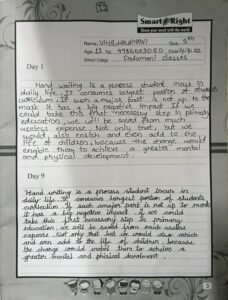 Smart@Right
Share your word with the world
Name: Std. 5th
Age. 11 Tel. 9986083050 Date
School / College Dadamani classes
Day 1
Hand writing is a process student in
daily life. It consumes largest portion of students
curriculum. If such a major part is not up to the
mark it has a big negative impact. If we
could take this first necessary step in primary
education, we will be saved from much
useless expense. Not only that, but we
would also enrich and even add to the
life of children, because the change would
enable them to achieve a greater mental
and physical development.
Day 9
Hand writing is a process student in
daily life. It consumes largest portion of students
curriculum. If such major part is not up to the mark
it has a big negative impact. If we could
take this first necessary step in primary
education, we will be saved from much useless
expense. Not only that but we could also enrich
and even add to the life of children, because
the change would enable them to achieve a
greater mental and physical